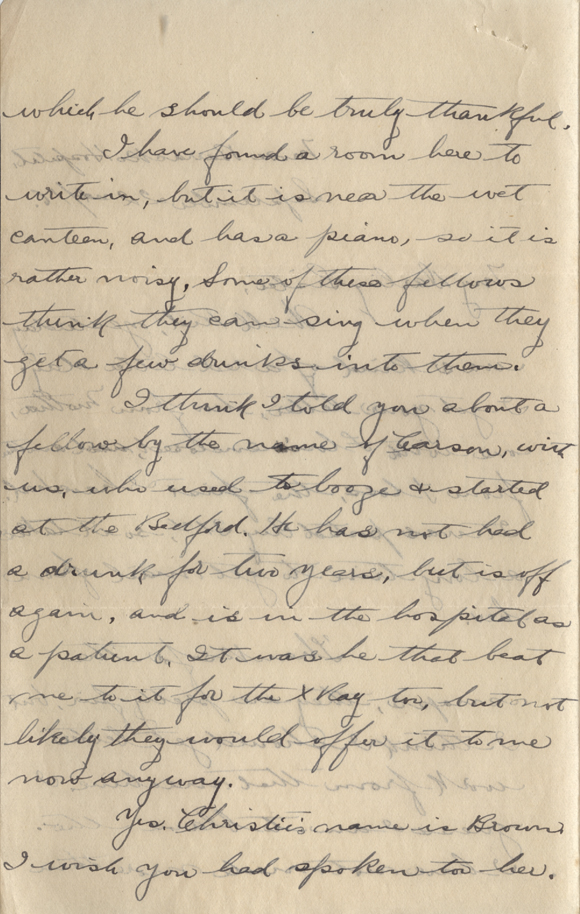 which he should be truly thankful.
I have found a room here to
write in, but it is near the wet
canteen, and has a piano, so it is
rather noisy. Some of these fellows
think they can sing when they
get a few drinks into them.
I think I told you about a
fellow by the name of Carson, with
us, who used to booze & started
at the Bedford. He has not had
a drunk for two years, but is off
again, and is in the hospital as
a patient. It was he that beat
me to it for the X Ray too, but not
likely they would offer it to me
now anyway.
Yes. Christie's name is Brown
I wish you had spoken to her.